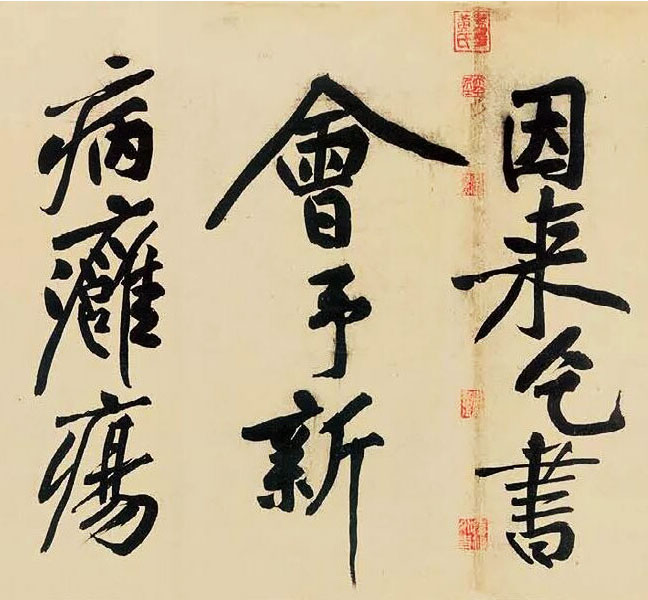 因来乞書
會予新
病癰瘍